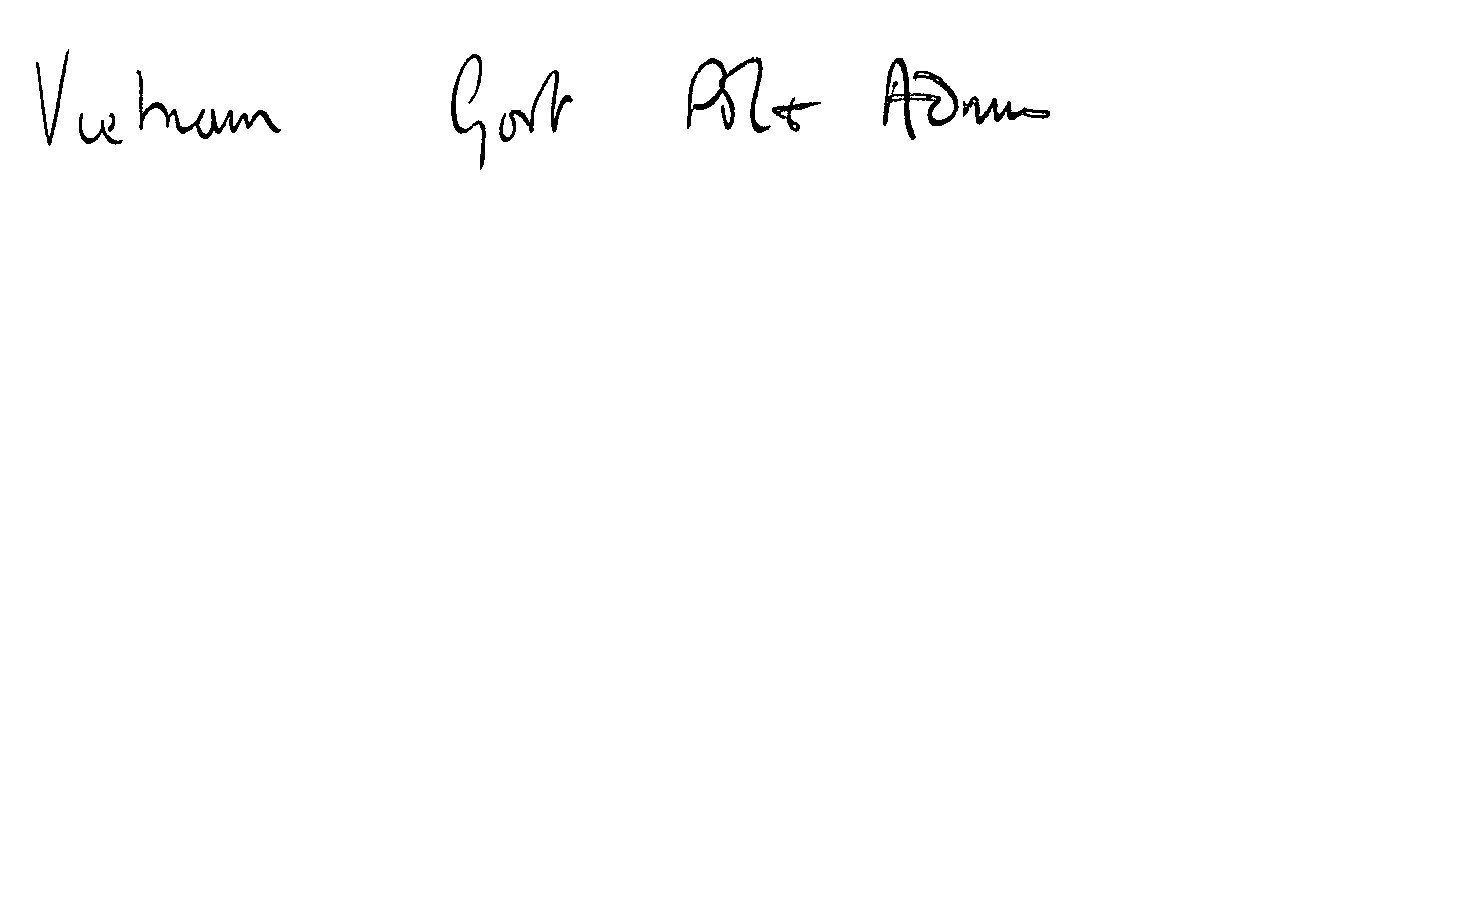 Vietnam Govt Pol + Admn